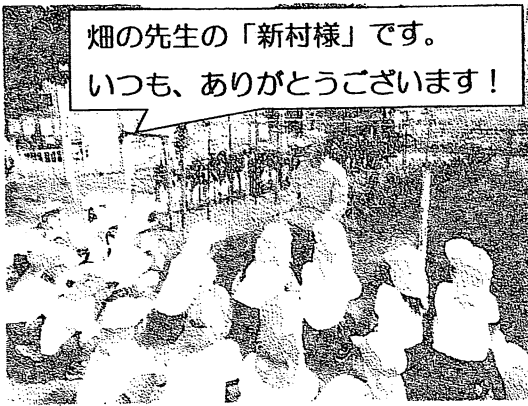 畑の先生の「新村様」です。
いつも、ありがとうございます！